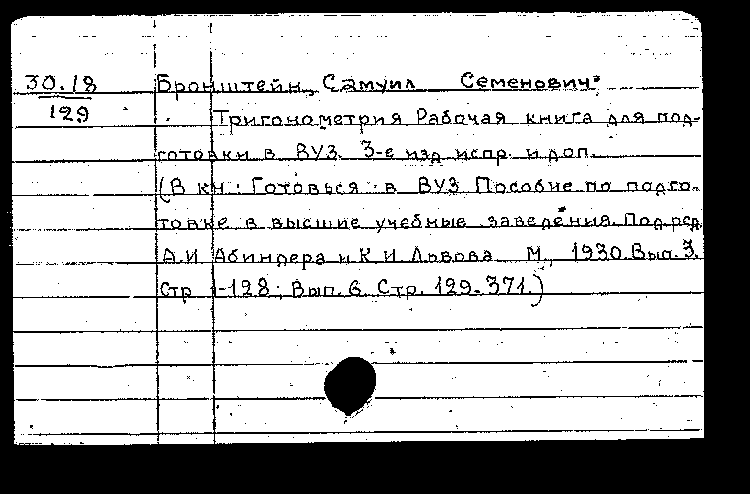 30.18
129
Бронштейн, Самуил Семенович.
Тригонометрия Рабочая книга для под-
готовки в ВУЗ. 3-е изд испр. и доп.
(В кн.: Готовься в ВУЗ Пособие по подго-
товке в высшие учебные заведения. Под.ред.
А.И Абиндера и К.И. Львова М., 1930. Вып. 3.
Стр 1-128; Вып. 6. Стр. 129-371.)